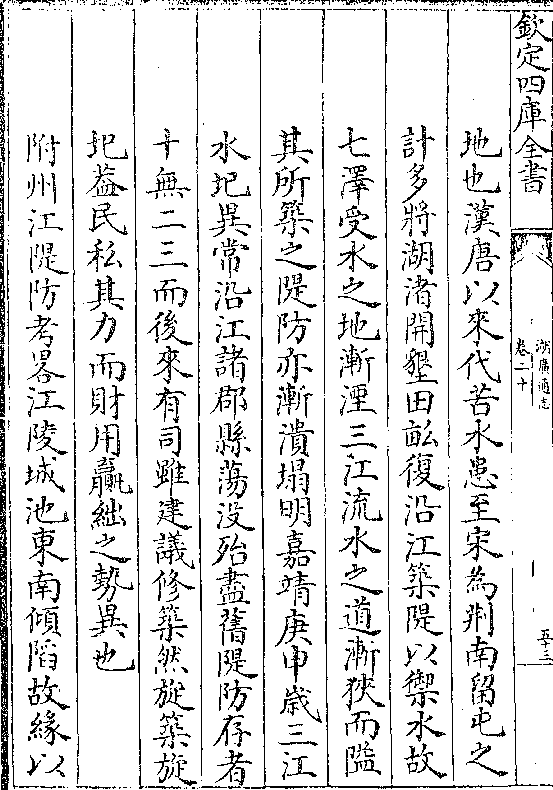 欽定四庫全書
湖廣通志
卷二十
五十三
地也漢唐以來代苦水患至宋為荆南留屯之
計多將湖渚開墾田畝復沿江築隄以禦水故
七澤受水之地漸湮三江流水之道漸狹而隘
其所築之隄防亦漸潰塌明嘉靖庚申歲三江
水圯異常沿江諸郡縣蕩没殆盡舊隄防存者
十無二三而後來有司雖建議修築然旋築旋
圯葢民私其力而財用贏絀之勢異也
附州江隄防考畧江陵城池東南傾陷故緣以